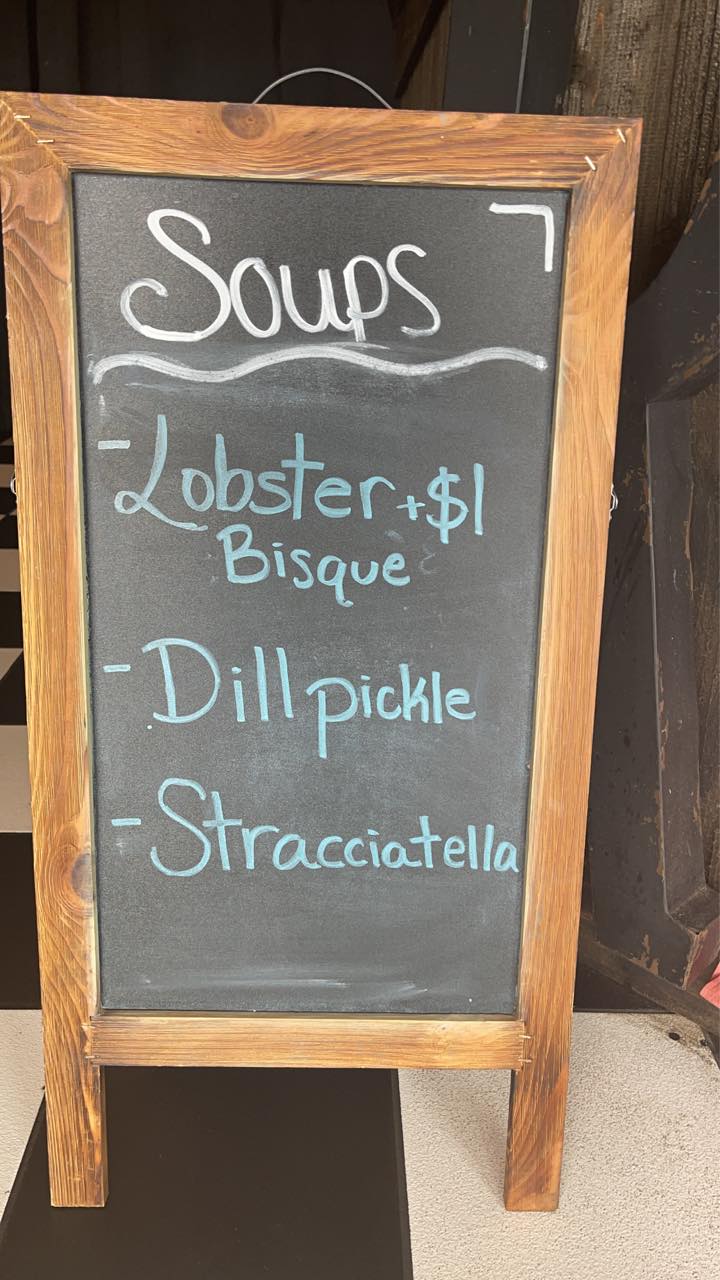 Soups
-Lobster +$1
Bisque
-Dill pickle
-Stracciatella